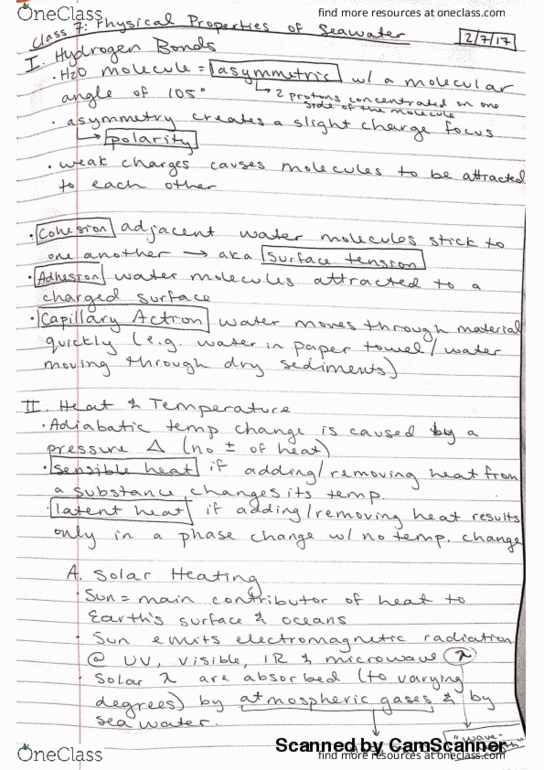 OneClass
find more resources at oneclass.com
Class 7: Physical Properties of Seawater
2/7/17
I. Hydrogen Bonds
· H2O molecule = asymmetric w/ a molecular
angle of 105°
↳ 2 protons concentrated on one
side of the molecule
· asymmetry creates a slight charge focus
↳ polarity
· weak charges causes molecules to be attracted
to each other
· Cohesion adjacent water molecules stick to
one another → aka surface tension
· Adhesion water molecules attracted to a
charged surface
· Capillary Action water moves through material
quickly (e.g. water in paper towel / water
moving through dry sediments)
II. Heat & Temperature
· Adiabatic temp change is caused by a
pressure Δ (no ± of heat)
· sensible heat if adding/removing heat from
a substance changes its temp.
· latent heat if adding/removing heat results
only in a phase change w/ no temp. change
A. Solar Heating
· Sun = main contributor of heat to
Earth's surface & oceans
· Sun emits electromagnetic radiation
@ UV, visible, IR & microwave λ
· Solar λ are absorbed (to varying
degrees) by atmospheric gases & by
sea water.
"wave-
Scanned by CamScanner
OneClass
find more resources at oneclass.com